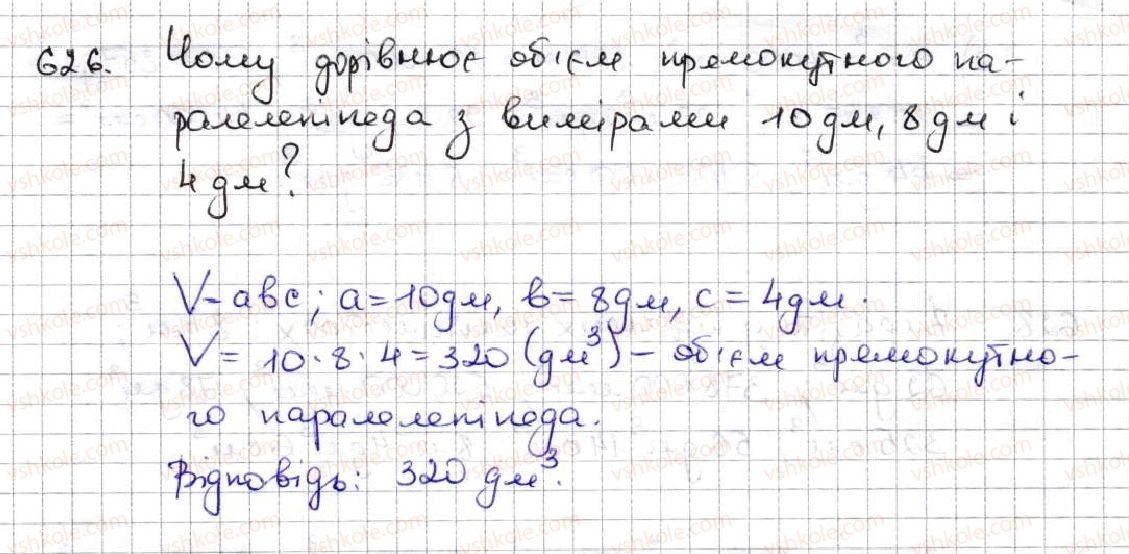 626. Чому дорівнює об'єм прямокутного па-
ралелепіпеда з вимірами 10 дм, 8 дм і
4 дм?
V-abc; a=10дм, b=8дм, c=4дм.
V= 10·8·4=320 (дм³) – об'єм прямокутно-
го паралелепіпеда.
Відповідь: 320 дм³.